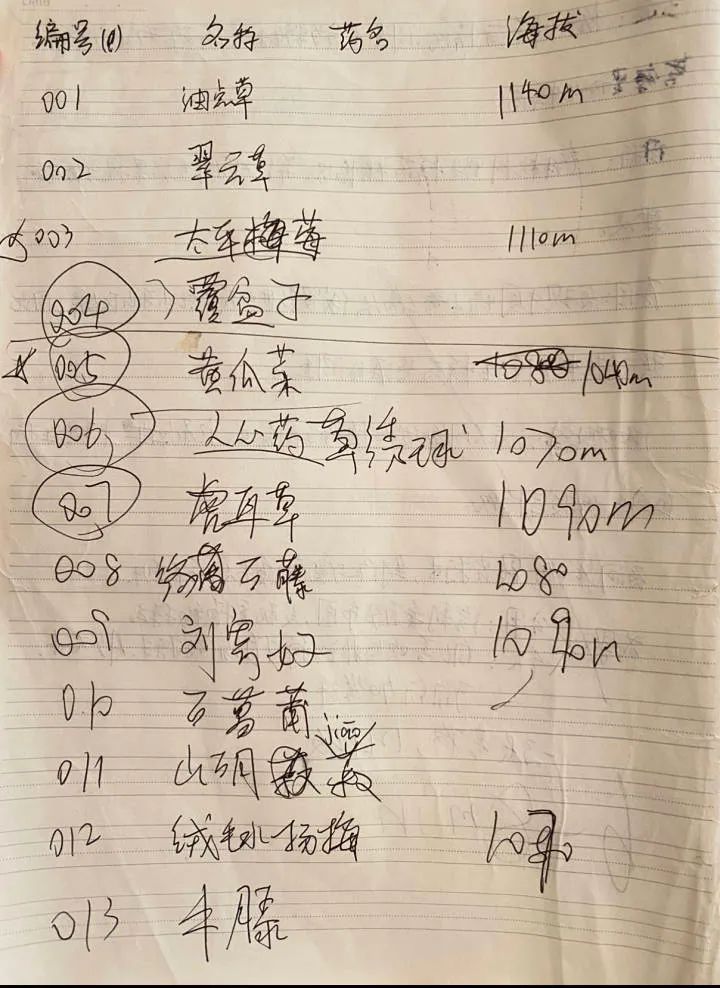 编号(e) 名称 药名 海拔
001 油点草 1140m
002 翠云草
003 太平莓 1110m
004 覆盆子
005 黄瓜菜 1040m
006 人心药 草绣球 1070m
007 虎耳草 1090m
008 络石藤 1080
009 刘寄奴 1090m
010 石菖蒲
011 山胡椒 jiāo
012 绒毛 1070
013 牛膝